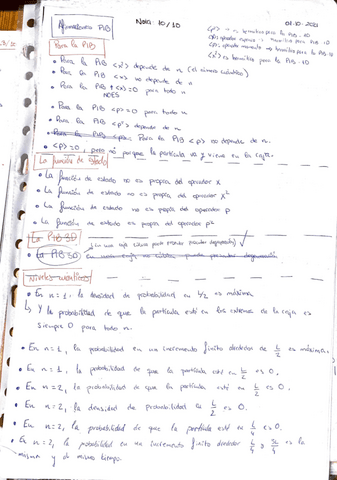 Afirmaciones PIB
Nota 10/10
01-10-2021
Para la PIB
• Para la PIB <x²> depende de n (el número cuántico)
• Para la PIB <x> no depende de n
• Para la PIB <x>=0 para todo n
NO ES
• Para la PIB <p>=0 para todo n
• Para la PIB <p²> depende de n
• Para la PIB <p> no depende de n.
• <p>=0, porque la partícula va y viene en la caja.
La función de estado
• La función de estado no es propia del operador x
• La función de estado no es propia del operador x²
• La función de estado no es propia del operador p
• La función de estado es propia del operador p²
La PIB 3D
(En una caja cúbica puede
• La PIB 3D en una caja
Niveles cuánticos
• En n=1, la densidad de probabilidad en L/2 es máxima
↳ Y la probabilidad de que la partícula esté en los extremos de la caja es
siempre 0 para todo n.
• En n=1, la probabilidad en un incremento finito alrededor de L/2 es máxima
• En n=1, la probabilidad de que la partícula esté en L/2 es 0.
• En n=2, la probabilidad de que la partícula esté en L/2 es 0.
• En n=2, la densidad de probabilidad en L/2 es 0.
• En n=2, la probabilidad de que la partícula esté en L/4 es 0.
• En n=2, la probabilidad en un incremento finito alrededor L/4 y 3L/4 es la
misma y al mismo tiempo.